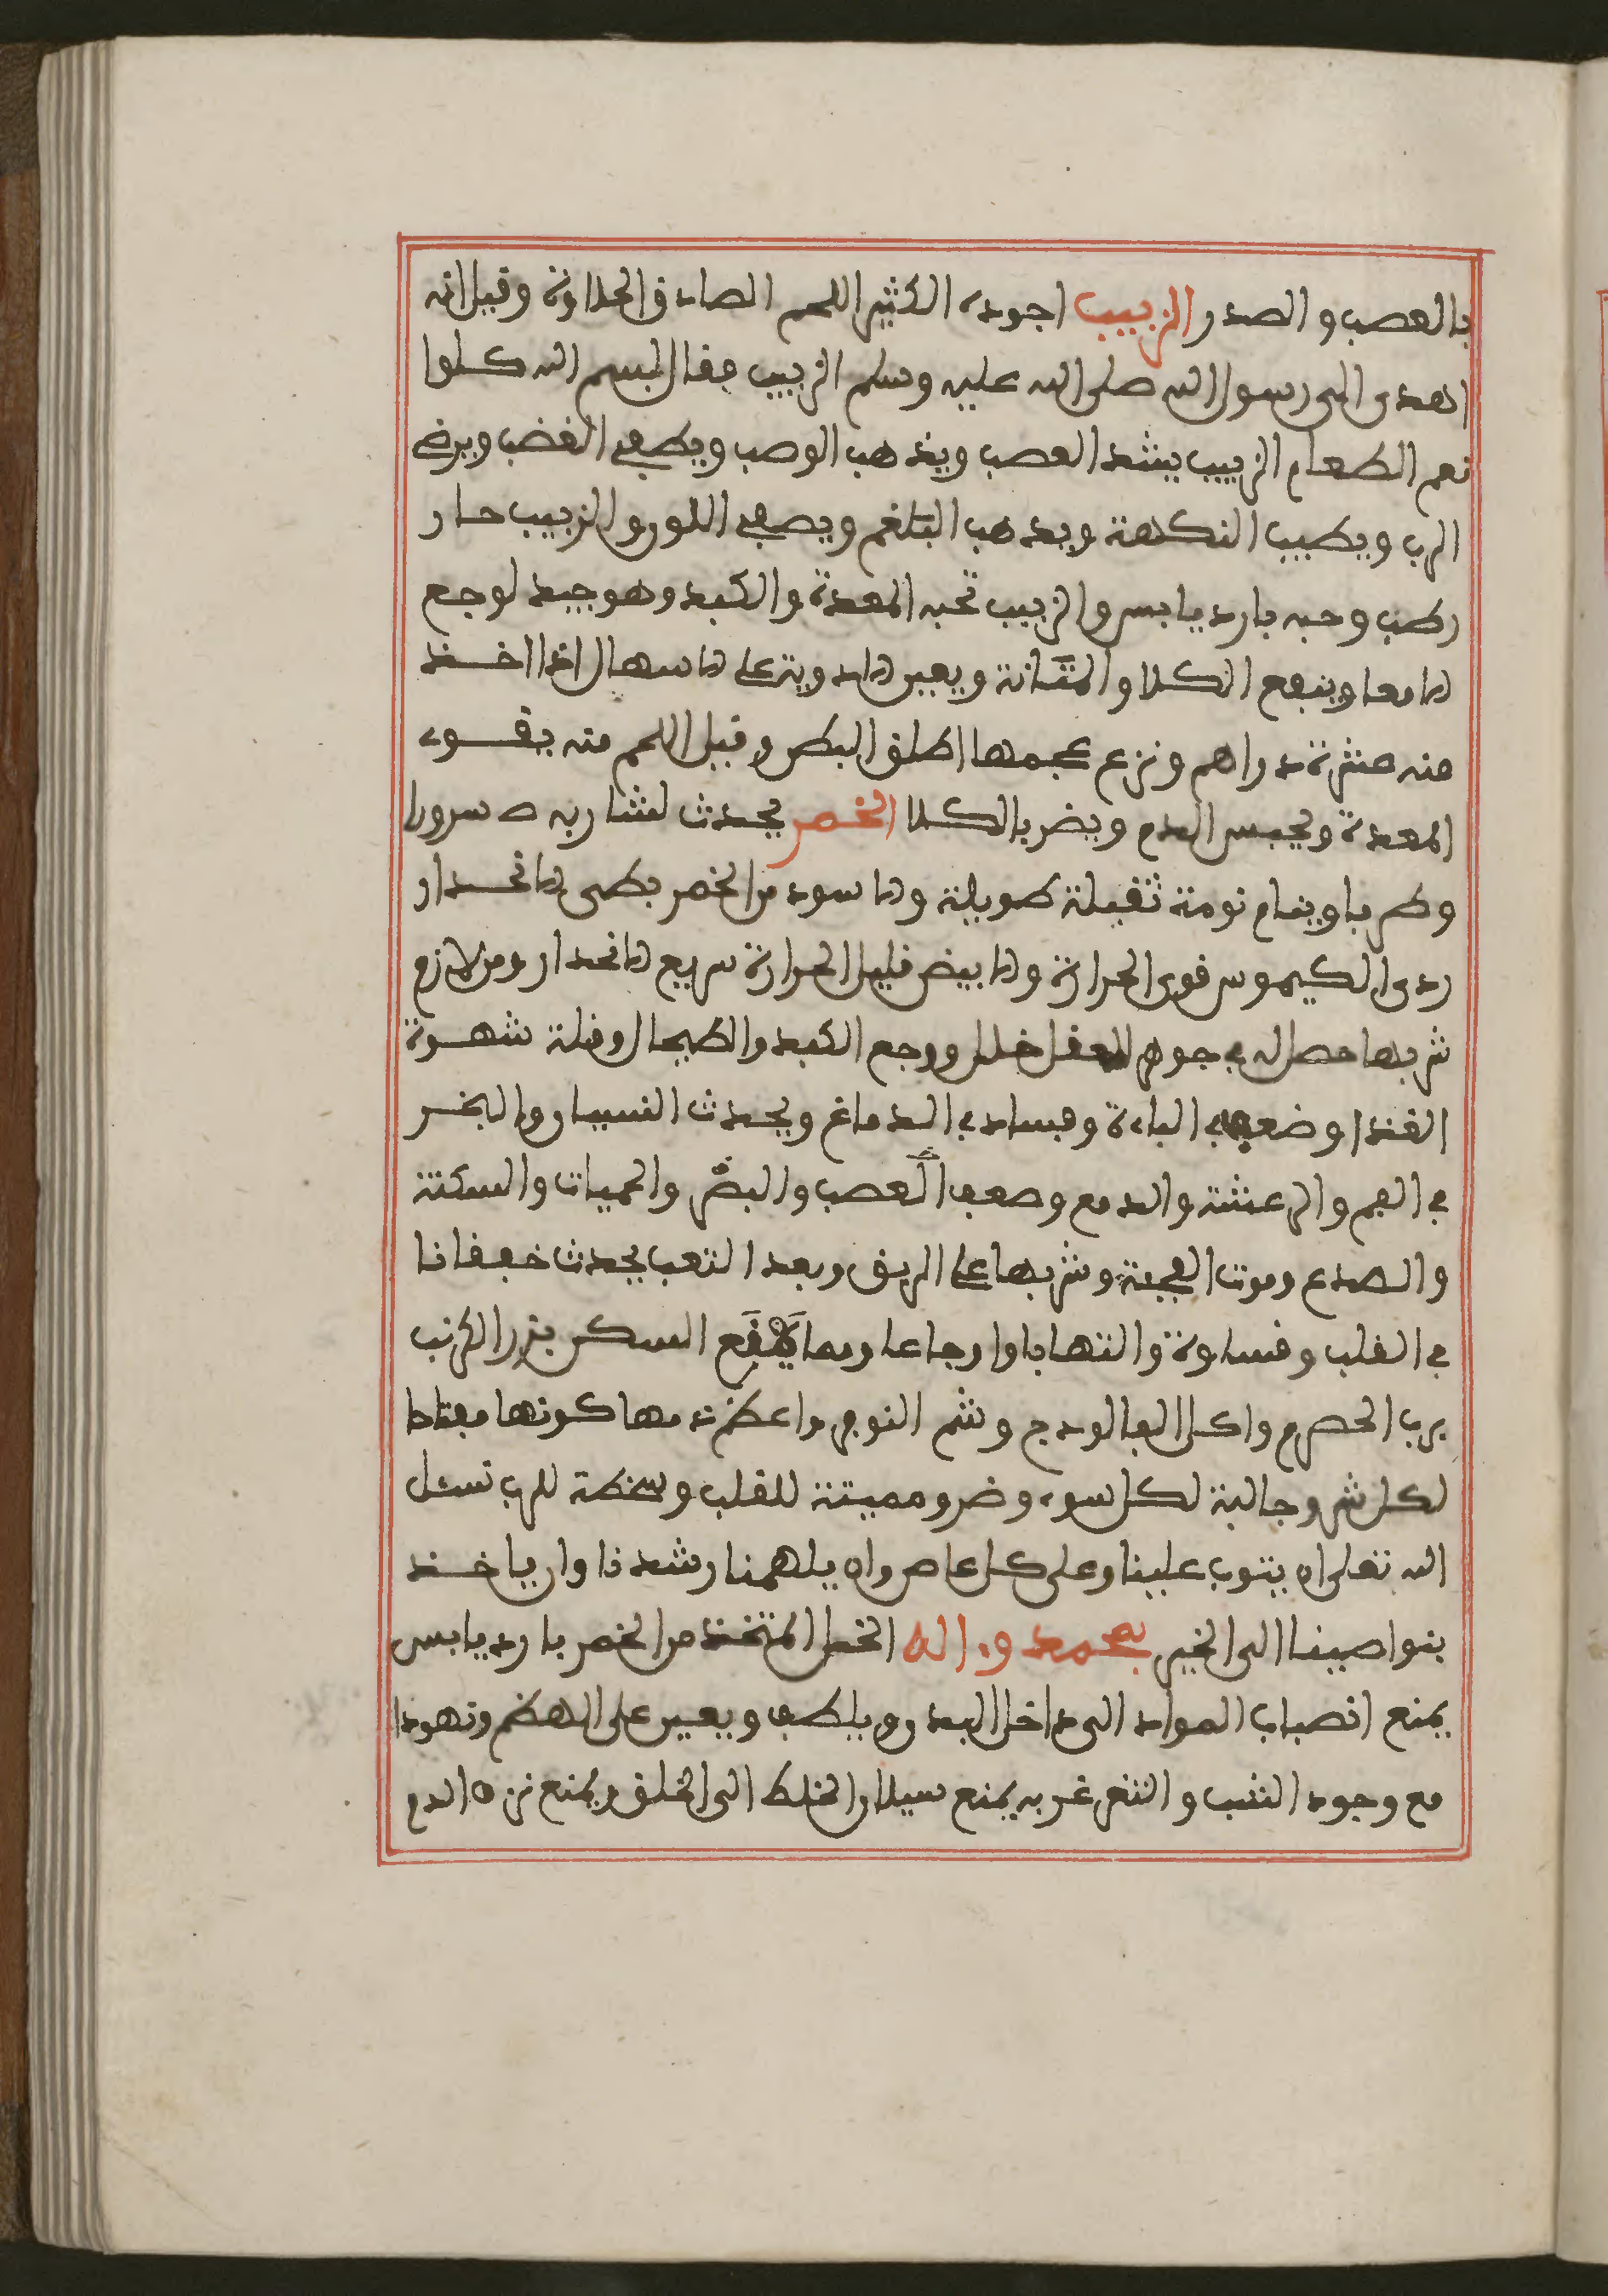 بالعصب والصدر الزبيب اجوده الكثير اللحم الصادق الحلاوة وقيل انه
اهدى الى رسول الله صلى الله عليه وسلم الزبيب فقال بسم الله كلوا
نعم الطعام الزبيب يشد العصب ويذهب الوصب ويطفى الغضب ويرضى
الرب ويطيب النكهة ويذهب البلغم ويصفى اللون والزبيب حار
رطب وحبه بارد يابس والزبيب تحبه المعدة والكبد وهو جيد لوجع
الامعا وينفع الكلا والمثانة ويعين الا على الاسهال اذا اخذ
منه عشرة دراهم ونزع عجمها اطلق البطن وقيل اللحم منه يقوى
المعدة ويحبس الدم ويضر بالكلا الخمر يحدث لشاربه سرورا
وطربا وينام نومة ثقيلة طويلة والاسود من الخمر بطى الانحدار
ردى الكيموس قوى الحرارة والابيض قليل الحرارة سريع الانحدار ومن لازم
شربها حصل له في جوهر العقل خلل ووجع الكبد والطحال وقلة شهوة
الغذا وضعف في الباءة وفساد في الدماغ ويحدث النسيان والبخر
في الفم والرعشة والدمع وضعف العصب والبصر والحميات والسكتة
والصدع وموت الفجئة وشربها على الريق وبعد التعب يحدث خفقانا
في القلب وقساوة والتهابا واوجاعا ومما يقع السكر بزر الكرنب
برب الحصرم واكل الفالودج وشم النوفر واعظم ذمها كونها مفتاحا
لكل شر وجالبة لكل سوء وضر ومميتة للقلب وسخطة للرب نسئل
الله تعالى ان يتوب علينا وعلى كل عاص وان يلهمنا رشدنا وان ياخذ
بنواصينا الى الخير بمحمد واله الخل المتخذ من الخمر بارد يابس
يمنع انصباب المواد الى داخل البدن ويلطف ويعين على الهضم وتهودا
مع وجود الشب والتغرغر به يمنع سيلان الخلط الى الحلق ويمنع نزه الدم